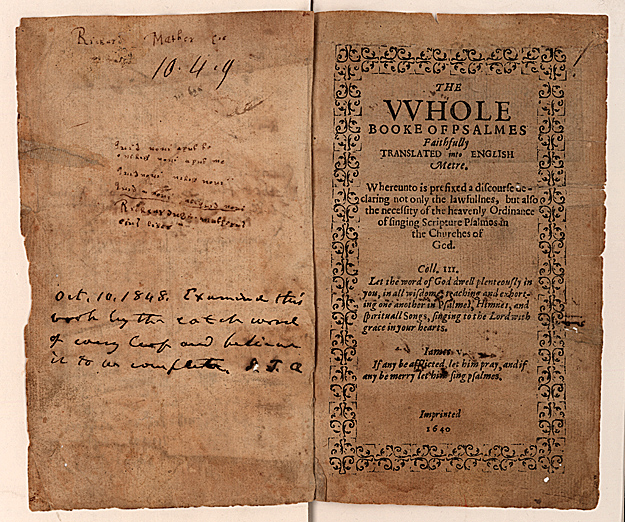 Richard Mather
10.4.9
Oct. 10, 1848. Examined this
work by the catch word
of every leaf and believe
it to be complete.
THE
VVHOLE
BOOKE OF PSALMES
Faithfully
TRANSLATED into ENGLISH
Metre.
Whereunto is prefixed a discourse de-
claring not only the lawfullnes, but also
the necessity of the heavenly Ordinance
of singing Scripture Psalmes in
the Churches of
God.
Coll. III.
Let the word of God dwell plenteously in
you, in all wisdome, teaching and exhort-
ing one another in Psalmes, Himnes, and
spirituall Songs, singing to the Lord with
grace in your hearts.
Iames v.
If any be afflicted, let him pray, and if
any be merry let him sing psalmes.
Imprinted
1640